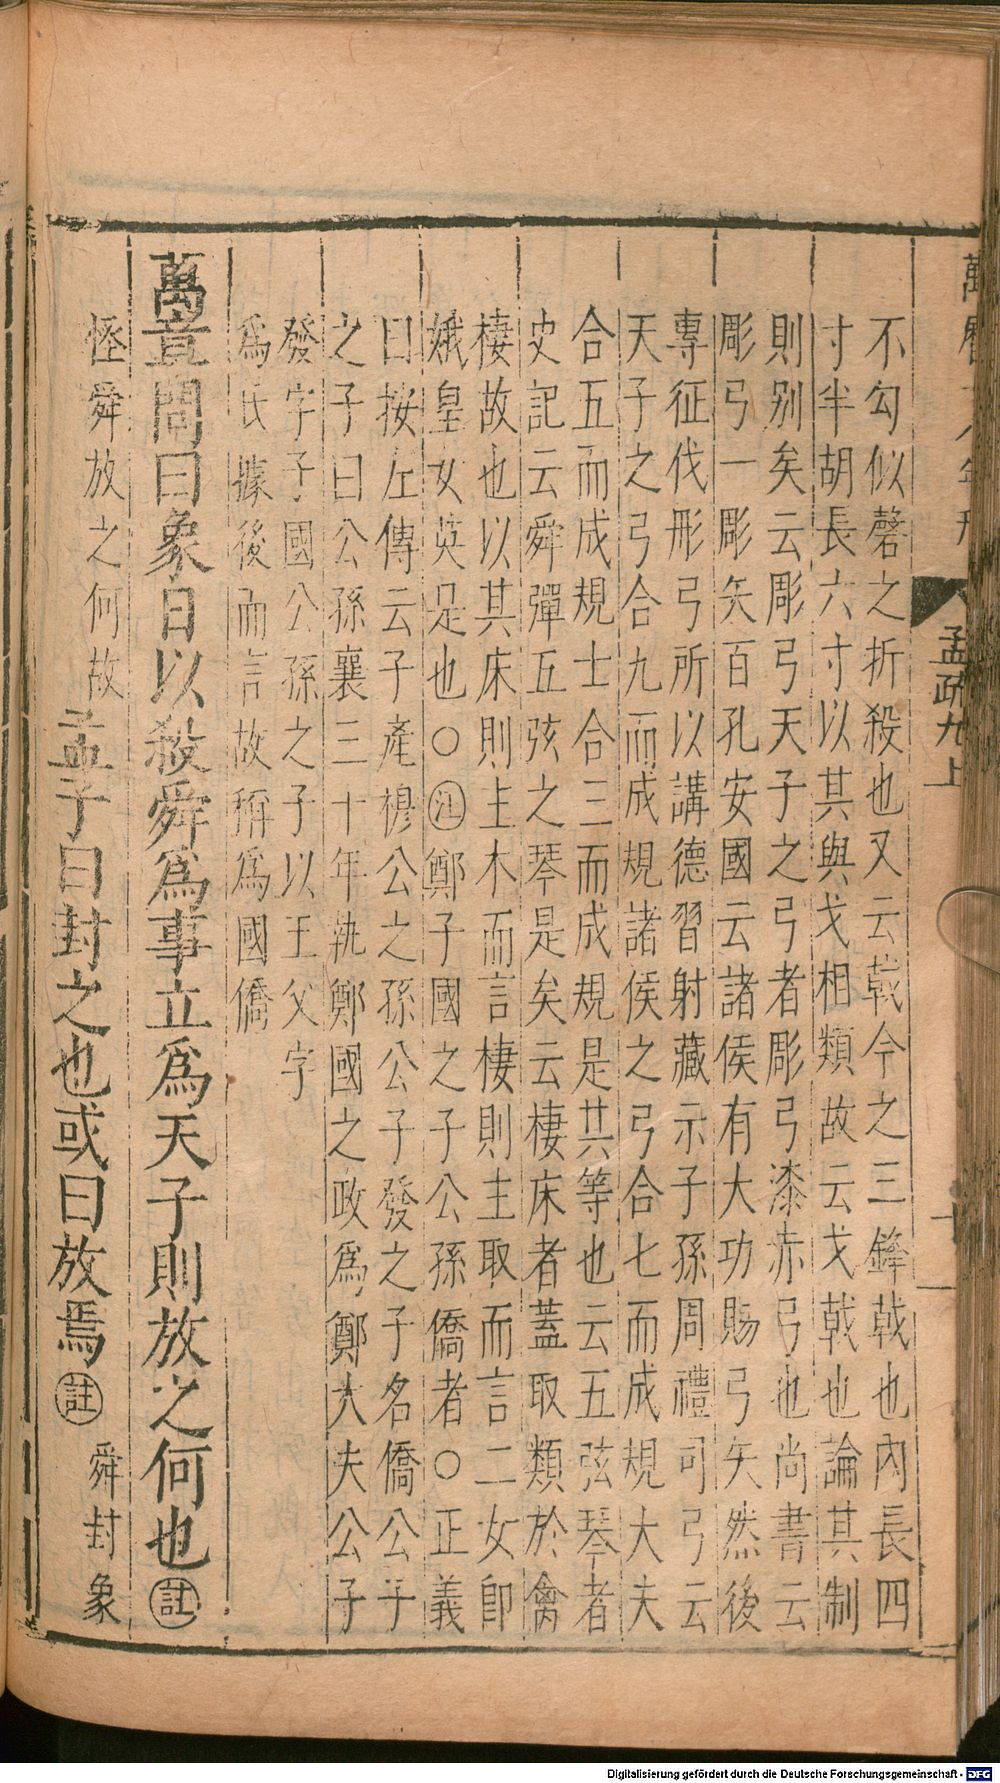 孟疏九上
十一
不勾似磬之折殺也又云戟今之三鋒戟也內長四
寸半胡長六寸以其與戈相類故云戈戟也論其制
則别矣云彫弓天子之弓者彫弓漆赤弓也尚書云
彫弓一彫矢百孔安國云諸侯有大功賜弓矢然後
專征伐彤弓所以講德習射藏示子孫周禮司弓云
天子之弓合九而成規諸侯之弓合七而成規大夫
合五而成規士合三而成規是其等也云五弦琴者
史記云舜彈五弦之琴是矣云棲床者蓋取類於禽
棲故也以其床則主木而言棲則主取而言二女即
娥皇女英是也○注鄭子國之子公孫僑者○正義
曰按左傳云子產穆公之孫公子發之子名僑公子
之子曰公孫襄三十年執鄭國之政爲鄭大夫公子
發字子國公孫之子以王父字
爲氏據後而言故稱爲國僑
萬章問曰象日以殺舜爲事立爲天子則放之何也註
怪舜放之何故
孟子曰封之也或曰放焉註
舜封象
Digitalisierung gefördert durch die Deutsche Forschungsgemeinschaft - DFG